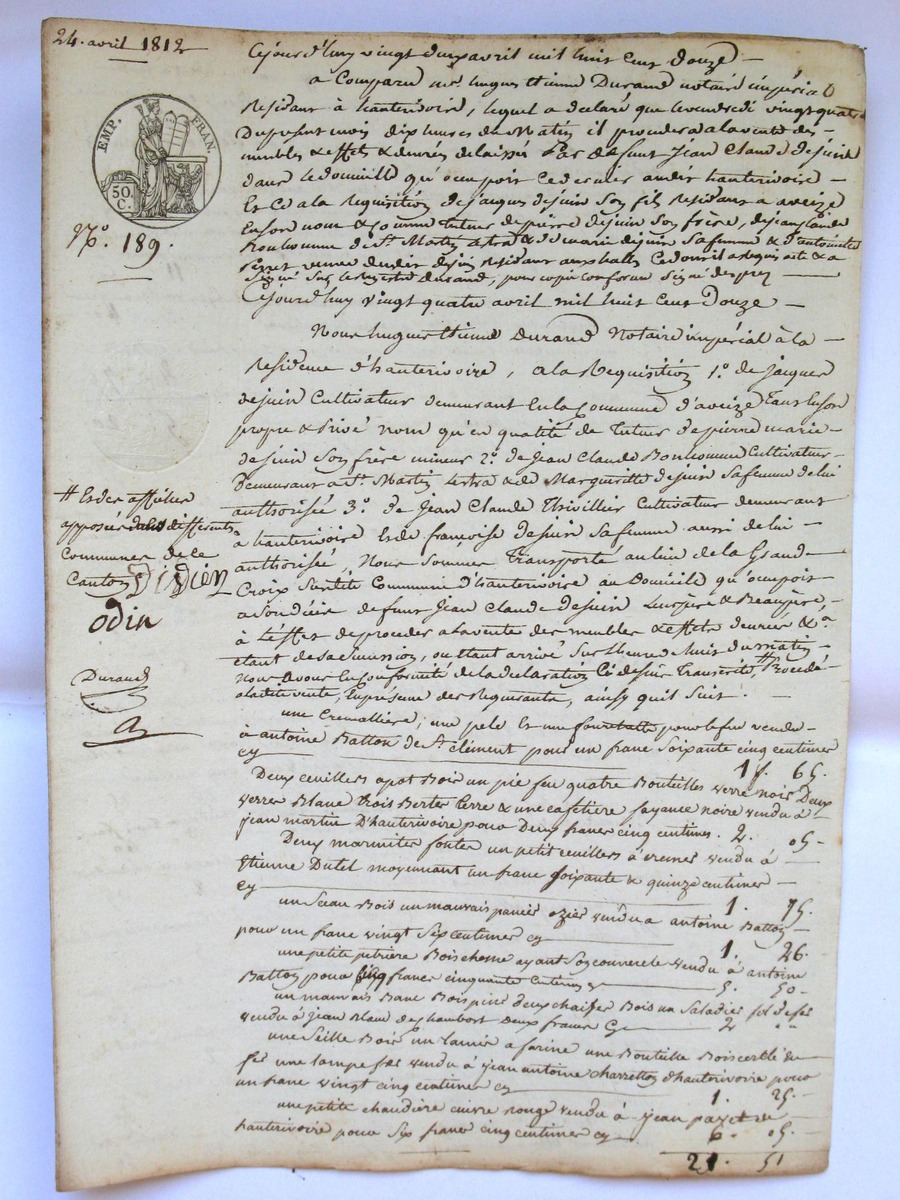 24. avril 1812
EMP. FRAN.
50. C.
N.o 189.
Cejourd'huy vingt deux avril mil huit cent douze —
a Comparu me. hugues Etienne Durand notaire impérial
Residant à hauterivoire, lequel a declaré que le vendredi vingt quatre
Du present mois dix heures du Matin il procedera a la vente des
meubles & effets & denrées delaissés Par defunt Jean Claude dejuin
dans le domicille qu'ocupoit ce dernier audit hauterivoire —
Et Ce a la Requisition de jaques dejuin Son fils Residant a aveize
En son nom & Comme tuteur de pierre dejuin Son frère, de jean Claude
Bonhomme de St. Martin Lestra & de marie dejuin Sa femme & d'antoinette
veuve dejuin Residant aux halles Ce dont il a Requis acte & a
Signé Sur le Registre durand, pour copie conforme Signé
Cejourd'huy vingt quatre avril mil huit Cent Douze —
Nous hugues Etienne Durand Notaire impérial à la —
Residence d'hauterivoire, a la Requisition 1.o de jacques
dejuin Cultivateur demeurant En la Commune d'aveize Tant En son
propre & Privé nom qu'en qualité de Tuteur de pierre marie —
dejuin Son frère mineur 2.o de Jean Claude Bonhomme Cultivateur
Demeurant a St. Martin Lestra & de Margueritte dejuin Sa femme de lui
authorisée 3.o de Jean Claude Thivillier Cultivateur demeurant
à hauterivoire Et de françoise dejuin Sa femme aussi de lui —
authorisée, Nous Sommes Transporté au lieu de la Grand —
Croix Susdite Commune d'hauterivoire au Domicile qu'ocupoit
a Son décès defunt Jean Claude dejuin Leur père & Beaupère,
à L'effet de proceder a la vente des meubles & effets denrées &.a
étant de sa sucession, ou étant arrivé Sur l'heure de huit du matin
nous avons En Conformité de la declaration Ci dessus Transcrite, # Procédé
a la dite vente, En présence des Requerants, ainsy quil Suit. —
# Et des affiches
apposées dans differentes
Communes de ce
Canton DiDiéR
odin
Durand
une Cremallière, une pele Et une fourchette pour le feu vendu —
à antoine Batton de St. clément pour un franc Soixante cinq centimes
cy — 1 f. 65.
Deux ceuillers a pot Bois un pie feu quatre Bouteilles verre noir Deux
verres Blanc trois Bertes terre & une cafetière fayance noire vendu à
jean martin D'hauterivoire pour Deux francs cinq centimes. 2. 05 —
Deux marmites fontes un petit ceuillers à cremer vendu à —
Etienne Dutel moyennant un franc Soixante & quinze centimes —
cy — 1. 75.
un Seau Bois un mauvais panier ozier vendu a antoine Batton —
pour un franc vingt Six centimes cy — 1. 26.
une petite petrière Bois chene ayant Son couvercle vendu à antoine
Batton pour Cinq francs cinquante Centimes cy — 5. 50 —
un mauvais Banc Bois pin deux chaises Bois un Saladier
vendu à Jean Blanc de chambost Deux francs Cy — 2 " "
une Seille Bois un tamis a farine une Bouteille Bois cerclé du
fer une lampe fer vendu à jean antoine Charretton d'hauterivoire pour
un franc vingt cinq centimes cy — 1. 25.
une petite chaudière cuivre rouge vendu à Jean payet de
hauterivoire pour Six francs cinq centimes cy — 6. 05.
21. 51